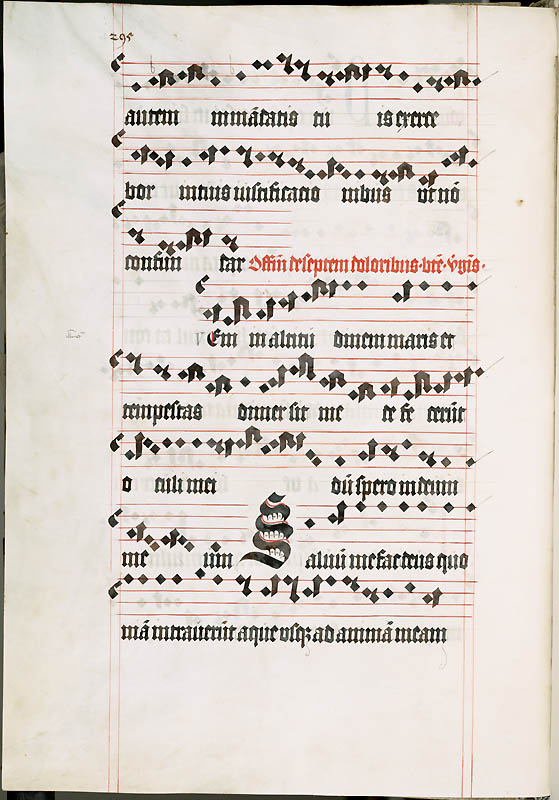 295
autem in mādatis tu is exerce
bor in tuis iustificatio nibus vt nō
confun dar Offm̄ de septem doloribus bte v̄gis.
Eni in altitu dinem maris et
tempestas dimersit me de fe cerūt
o culi mei dū spero in deum
me um Saluū me fac deus quo
niā intrauerūt aque vsqz ad animā meam